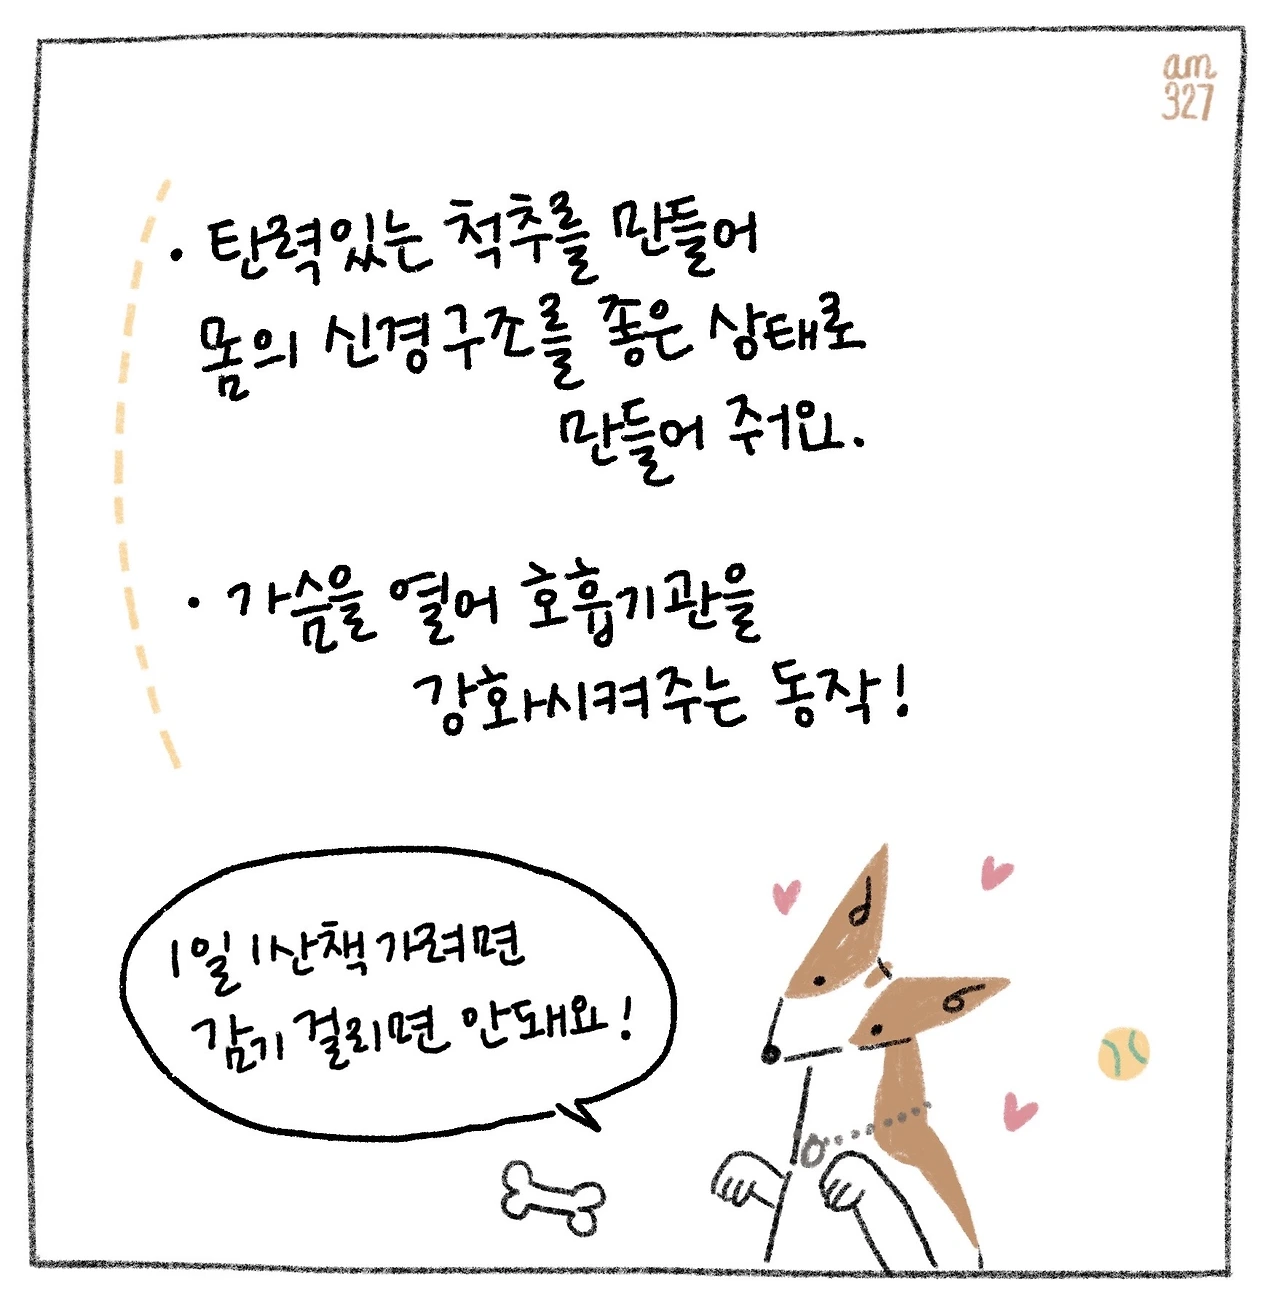 am
327
· 탄력있는 척추를 만들어
몸의 신경구조를 좋은 상태로
만들어 줘요.
· 가슴을 열어 호흡기관을
강화시켜주는 동작!
1일 1산책 가려면
감기 걸리면 안돼요!